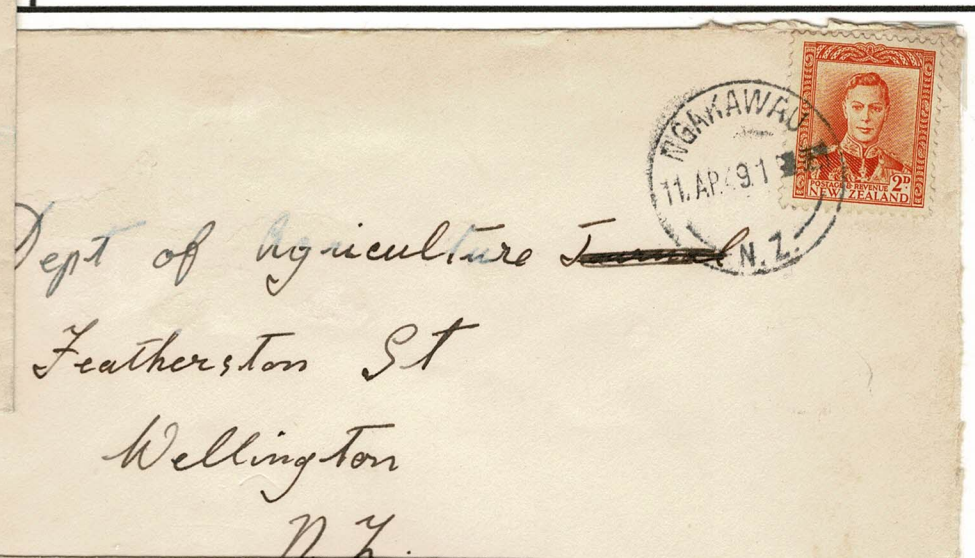 NGAKAWAU
11. AP. 49. 1
N.Z.
2D
POSTAGE REVENUE
NEW ZEALAND
Dept of Agriculture Journal
Featherston St
Wellington
N.Z.